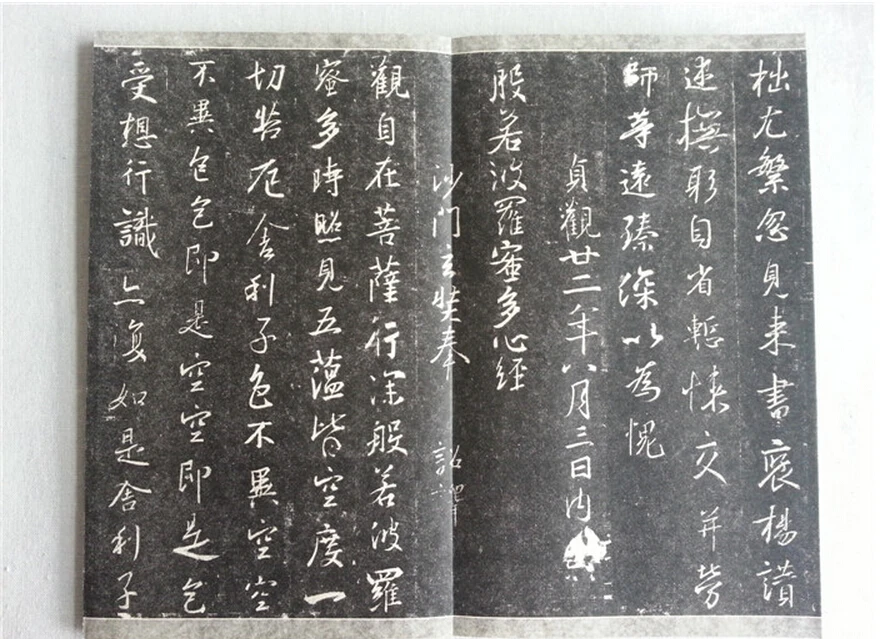 拙尤繁忽見来書褒揚讃
述撫躬自省慙悚交并勞
師等遠臻深以為愧
貞觀廿二年八月三日內
般若波羅蜜多心經
沙門玄奘奉 詔譯
觀自在菩薩行深般若波羅
蜜多時照見五蘊皆空度一
切苦厄舍利子色不異空空
不異色色即是空空即是色
受想行識亦復如是舍利子